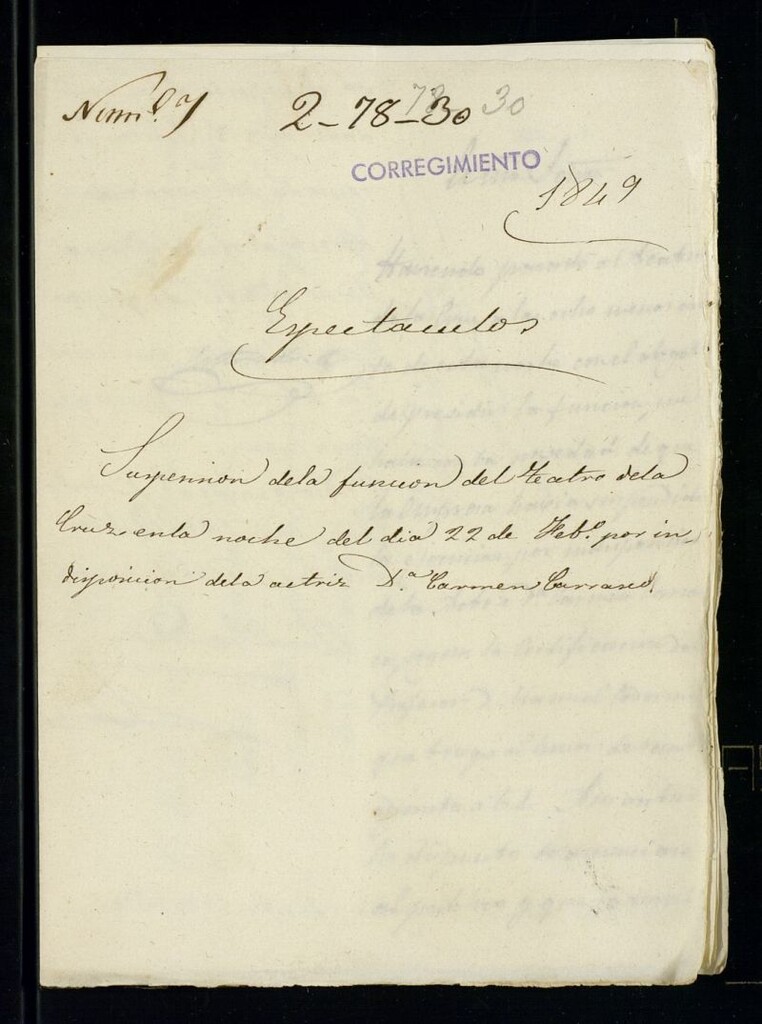 Num.º 7
2-78-30
78 30
CORREGIMIENTO
1849
Espectaculos
Suspension dela funcion del teatro dela
Cruz enla noche del dia 22 de Feb.º por in-
disposicion dela actriz D.ª Carmen Carrasco.